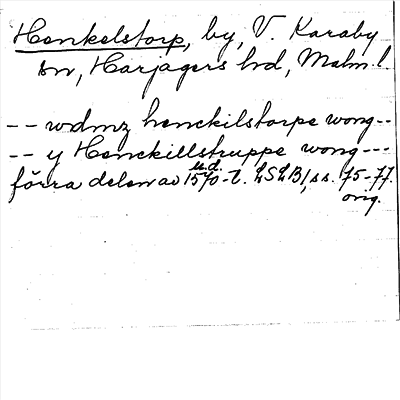 Henkelstorp, by, V. Karaby
sn, Harjagers hd, Malm. l.
-- wdmz henckilstorpe wong--
-- y Henckillstruppe wong---
u.d.
förra delen av 1570-t. LSLB1, ss. 75-77.
orig.